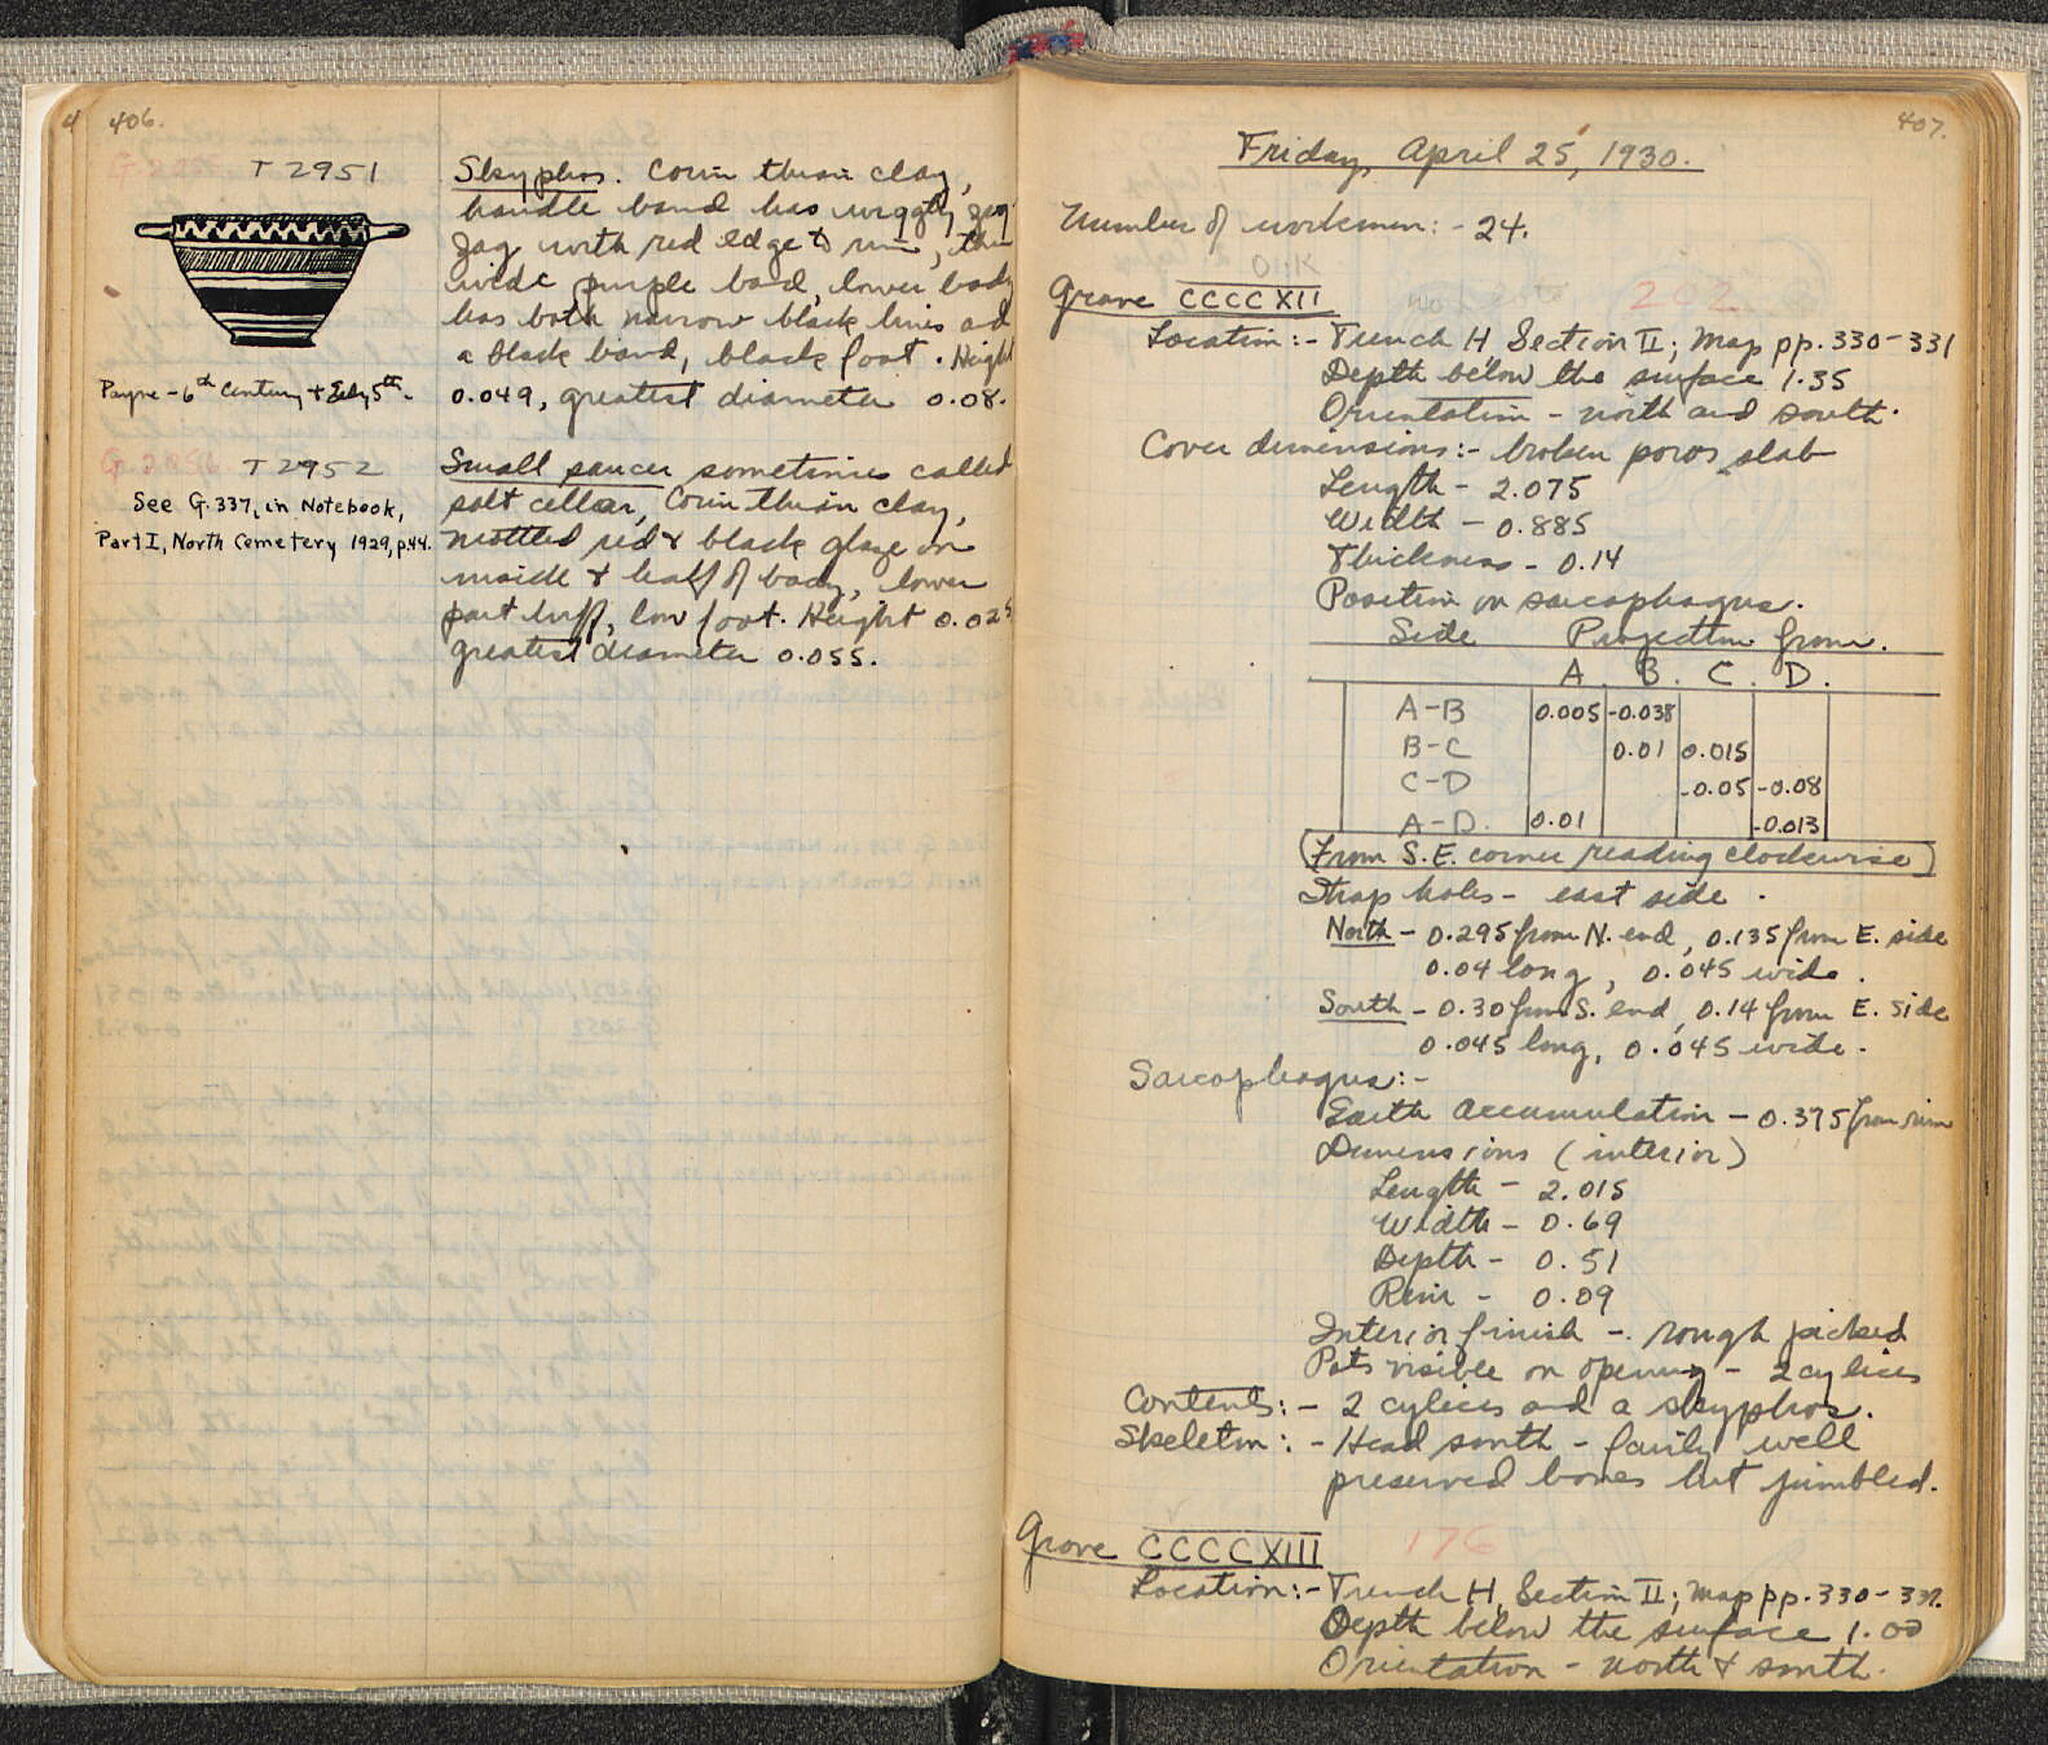 4 406.
T 2951
Payne - 6th Century + Early 5th.
T 2952
See G. 337, in Notebook,
Part I, North Cemetery 1929, p.44.
Skyphos. Corinthian clay,
handle band has wiggly zig
zag with red edge to rim, then
wide purple band, lower body
has both narrow black lines and
a black band, black foot. Height
0.049, greatest diameter 0.08.
Small saucer sometimes called
salt cellar, Corinthian clay,
mottled red & black glaze on
inside & half of body, lower
part buff, low foot. Height 0.025
greatest diameter 0.055.
407.
Friday, April 25, 1930.
Number of workmen: - 24.
O.K
Grave CCCCXII 202
Location: - Trench H, Section II; Map pp. 330-331
Depth below the surface 1.35
Orientation - north and south.
Cover dimensions: - broken poros slab
Length - 2.075
Width - 0.885
Thickness - 0.14
Position on sarcophagus.
Side Projection from.
A. B. C. D.
A-B 0.005 -0.038
B-C 0.01 0.015
C-D -0.05 -0.08
A-D. 0.01 -0.013
(From S.E. corner reading clockwise)
Strap holes - east side.
North - 0.295 from N. end, 0.135 from E. side
0.04 long, 0.045 wide.
South - 0.30 from S. end, 0.14 from E. side
0.045 long, 0.045 wide.
Sarcophagus: -
Earth accumulation - 0.375 from rim
Dimensions (interior)
Length - 2.015
Width - 0.69
Depth - 0.51
Rim - 0.09
Interior finish - rough picked
Pots visible on opening - 2 cylices
Contents: - 2 cylices and a skyphos.
Skeleton: - Head south - fairly well
preserved bones but jumbled.
Grave CCCCXIII 176
Location: - Trench H, Section II; Map pp. 330-331.
Depth below the surface 1.00
Orientation - north & south.